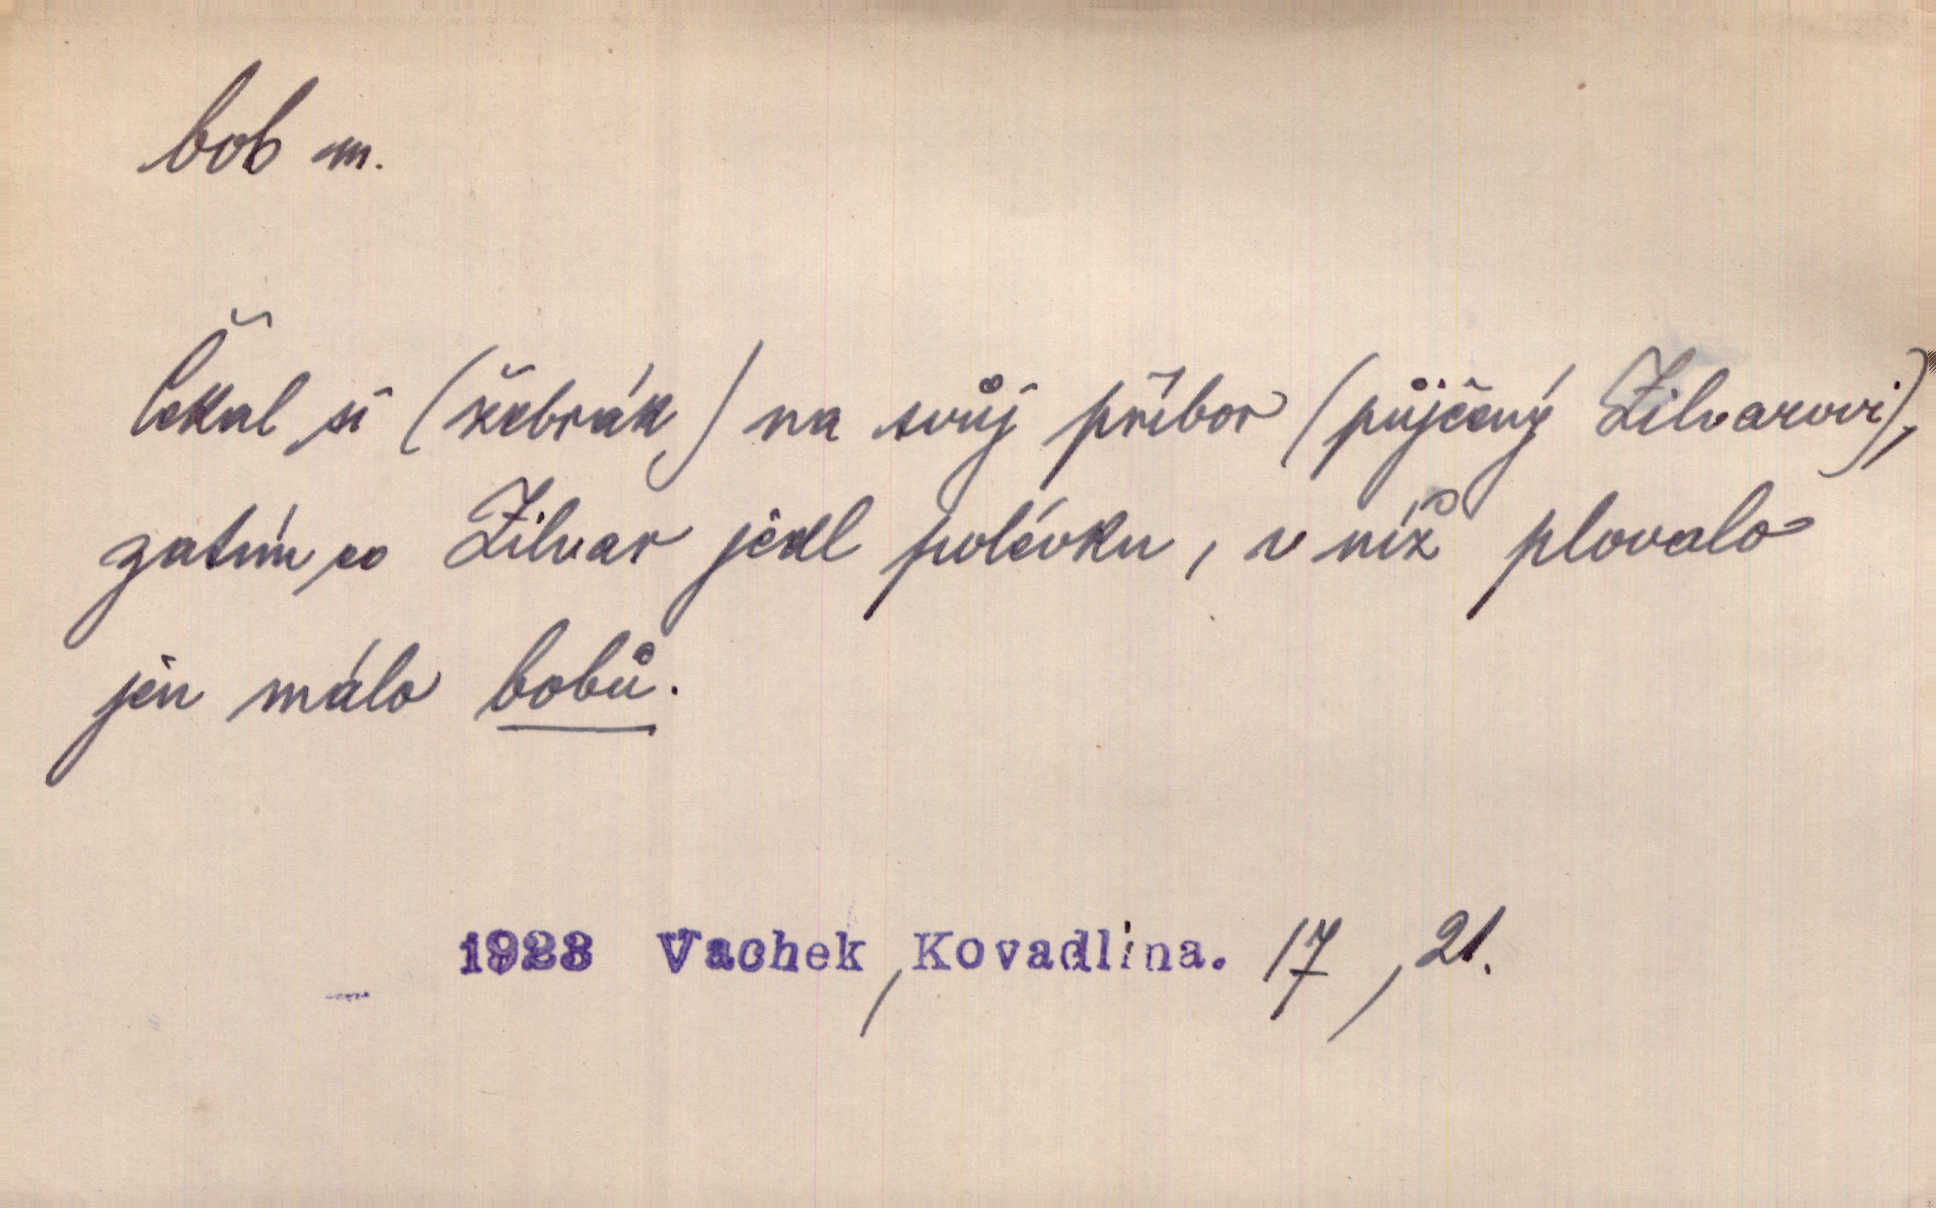 bob m.
Čekal si (žebrák) na svůj příbor (půjčený Žilvarovi),
zatím co Žilvar jedl polévku, v níž plovalo
jen málo bobů.
1923 Vachek, Kovadlina. 17, 21.